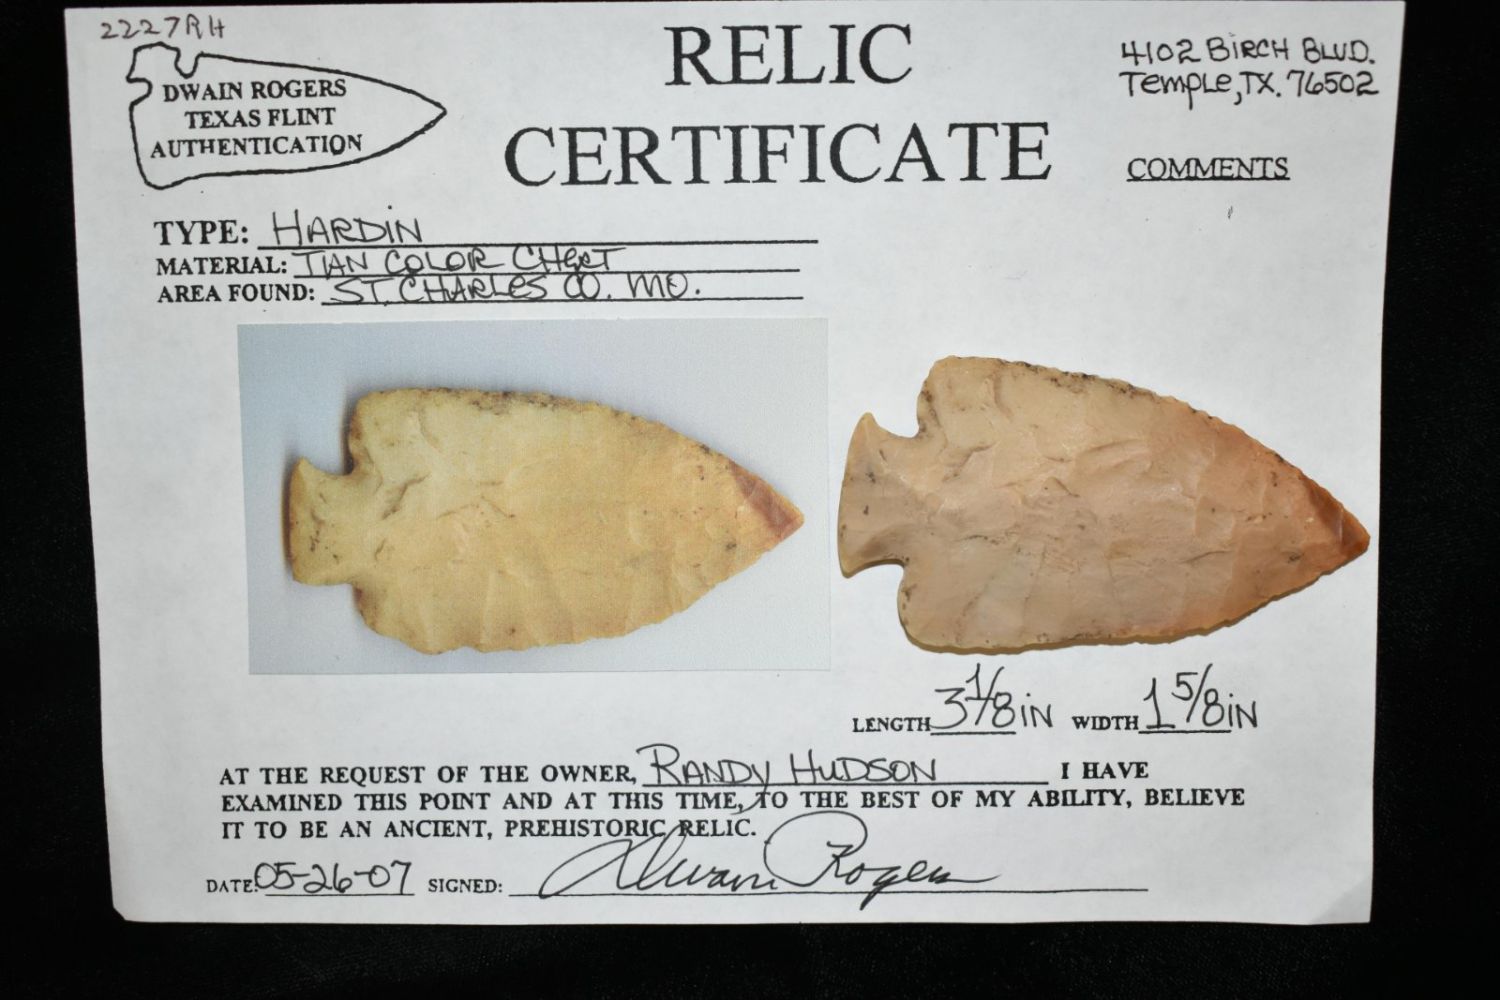 2227RH
DWAIN ROGERS
TEXAS FLINT
AUTHENTICATION
RELIC
CERTIFICATE
4102 BIRCH BLVD.
TEMPLE, TX. 76502
COMMENTS
TYPE: HARDIN
MATERIAL: TAN COLOR CHERT
AREA FOUND: ST. CHARLES CO. MO.
LENGTH 3 1/8 IN WIDTH 1 5/8 IN
AT THE REQUEST OF THE OWNER, RANDY HUDSON I HAVE
EXAMINED THIS POINT AND AT THIS TIME, TO THE BEST OF MY ABILITY, BELIEVE
IT TO BE AN ANCIENT, PREHISTORIC RELIC.
DATE: 05-26-07 SIGNED: Dwain Rogers